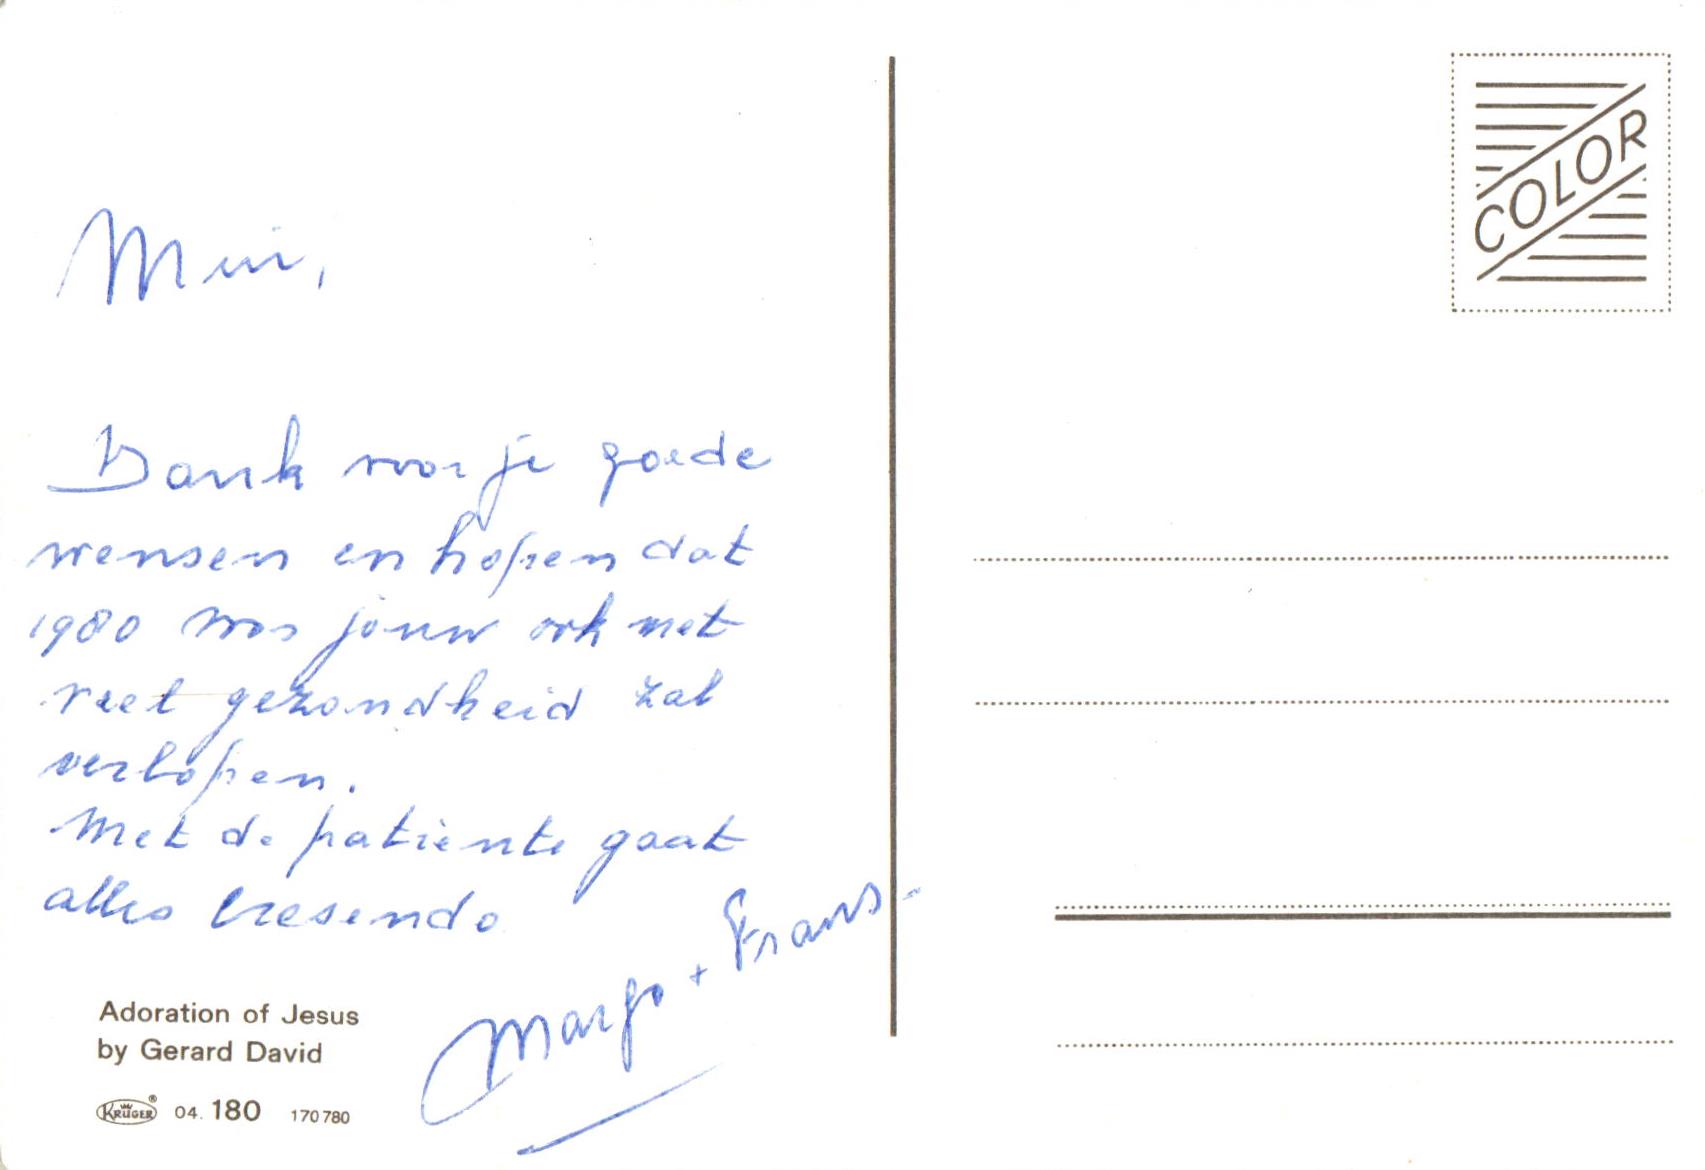 Min,
Dank voor je goede
wensen en hopen dat
1980 voor jouw ook met
veel gezondheid zal
verlopen.
Met de patiënte gaat
alles cresendo
Margo + Frans.
Adoration of Jesus
by Gerard David
KRÜGER ® 04. 180 170 780
COLOR